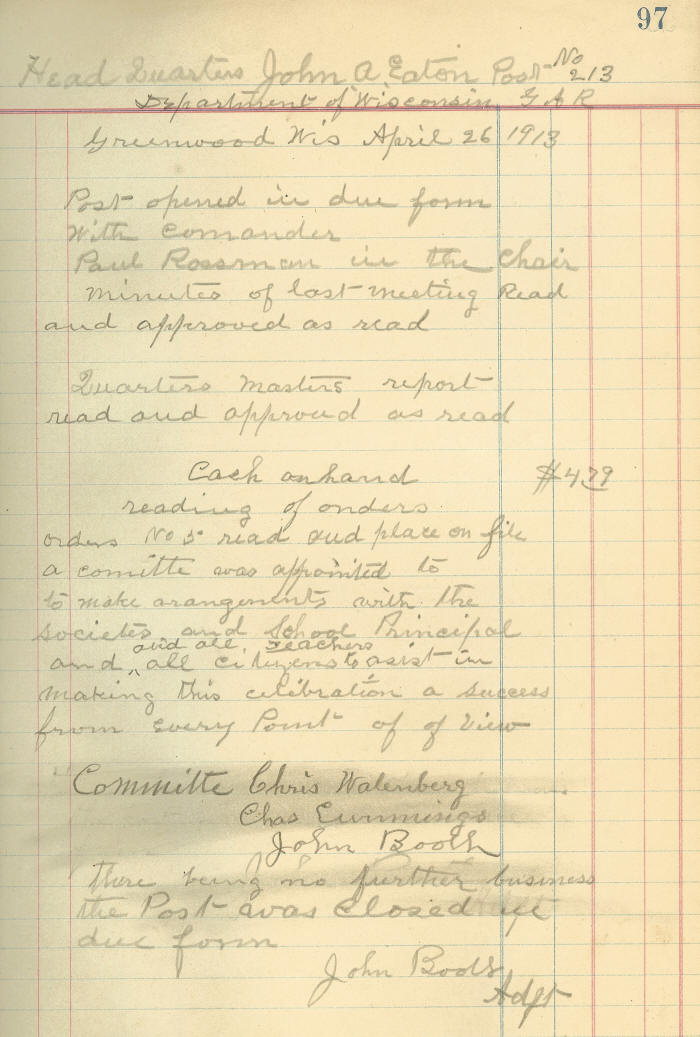 97
Head Quarters John A Eaton Post No 213
Department of Wisconsin G A R
Greenwood Wis April 26 1913
Post opened in due form
With Comander
Paul Rossman in the Chair
minutes of last meeting Read
and approved as read
Quarters Masters report
read and approved as read
Cash on hand $4 79
reading of orders
orders No 5 read and place on file
a comitte was appointed to
to make arangements with the
societes and School Principal
and all teachers
and all citizens to asist in
making this celibration a success
from every Point of of View
Committe Chris Walenberg
Chas Cummings
John Booth
there being no further business
the Post was Closed
due form
John Booth
Adjt